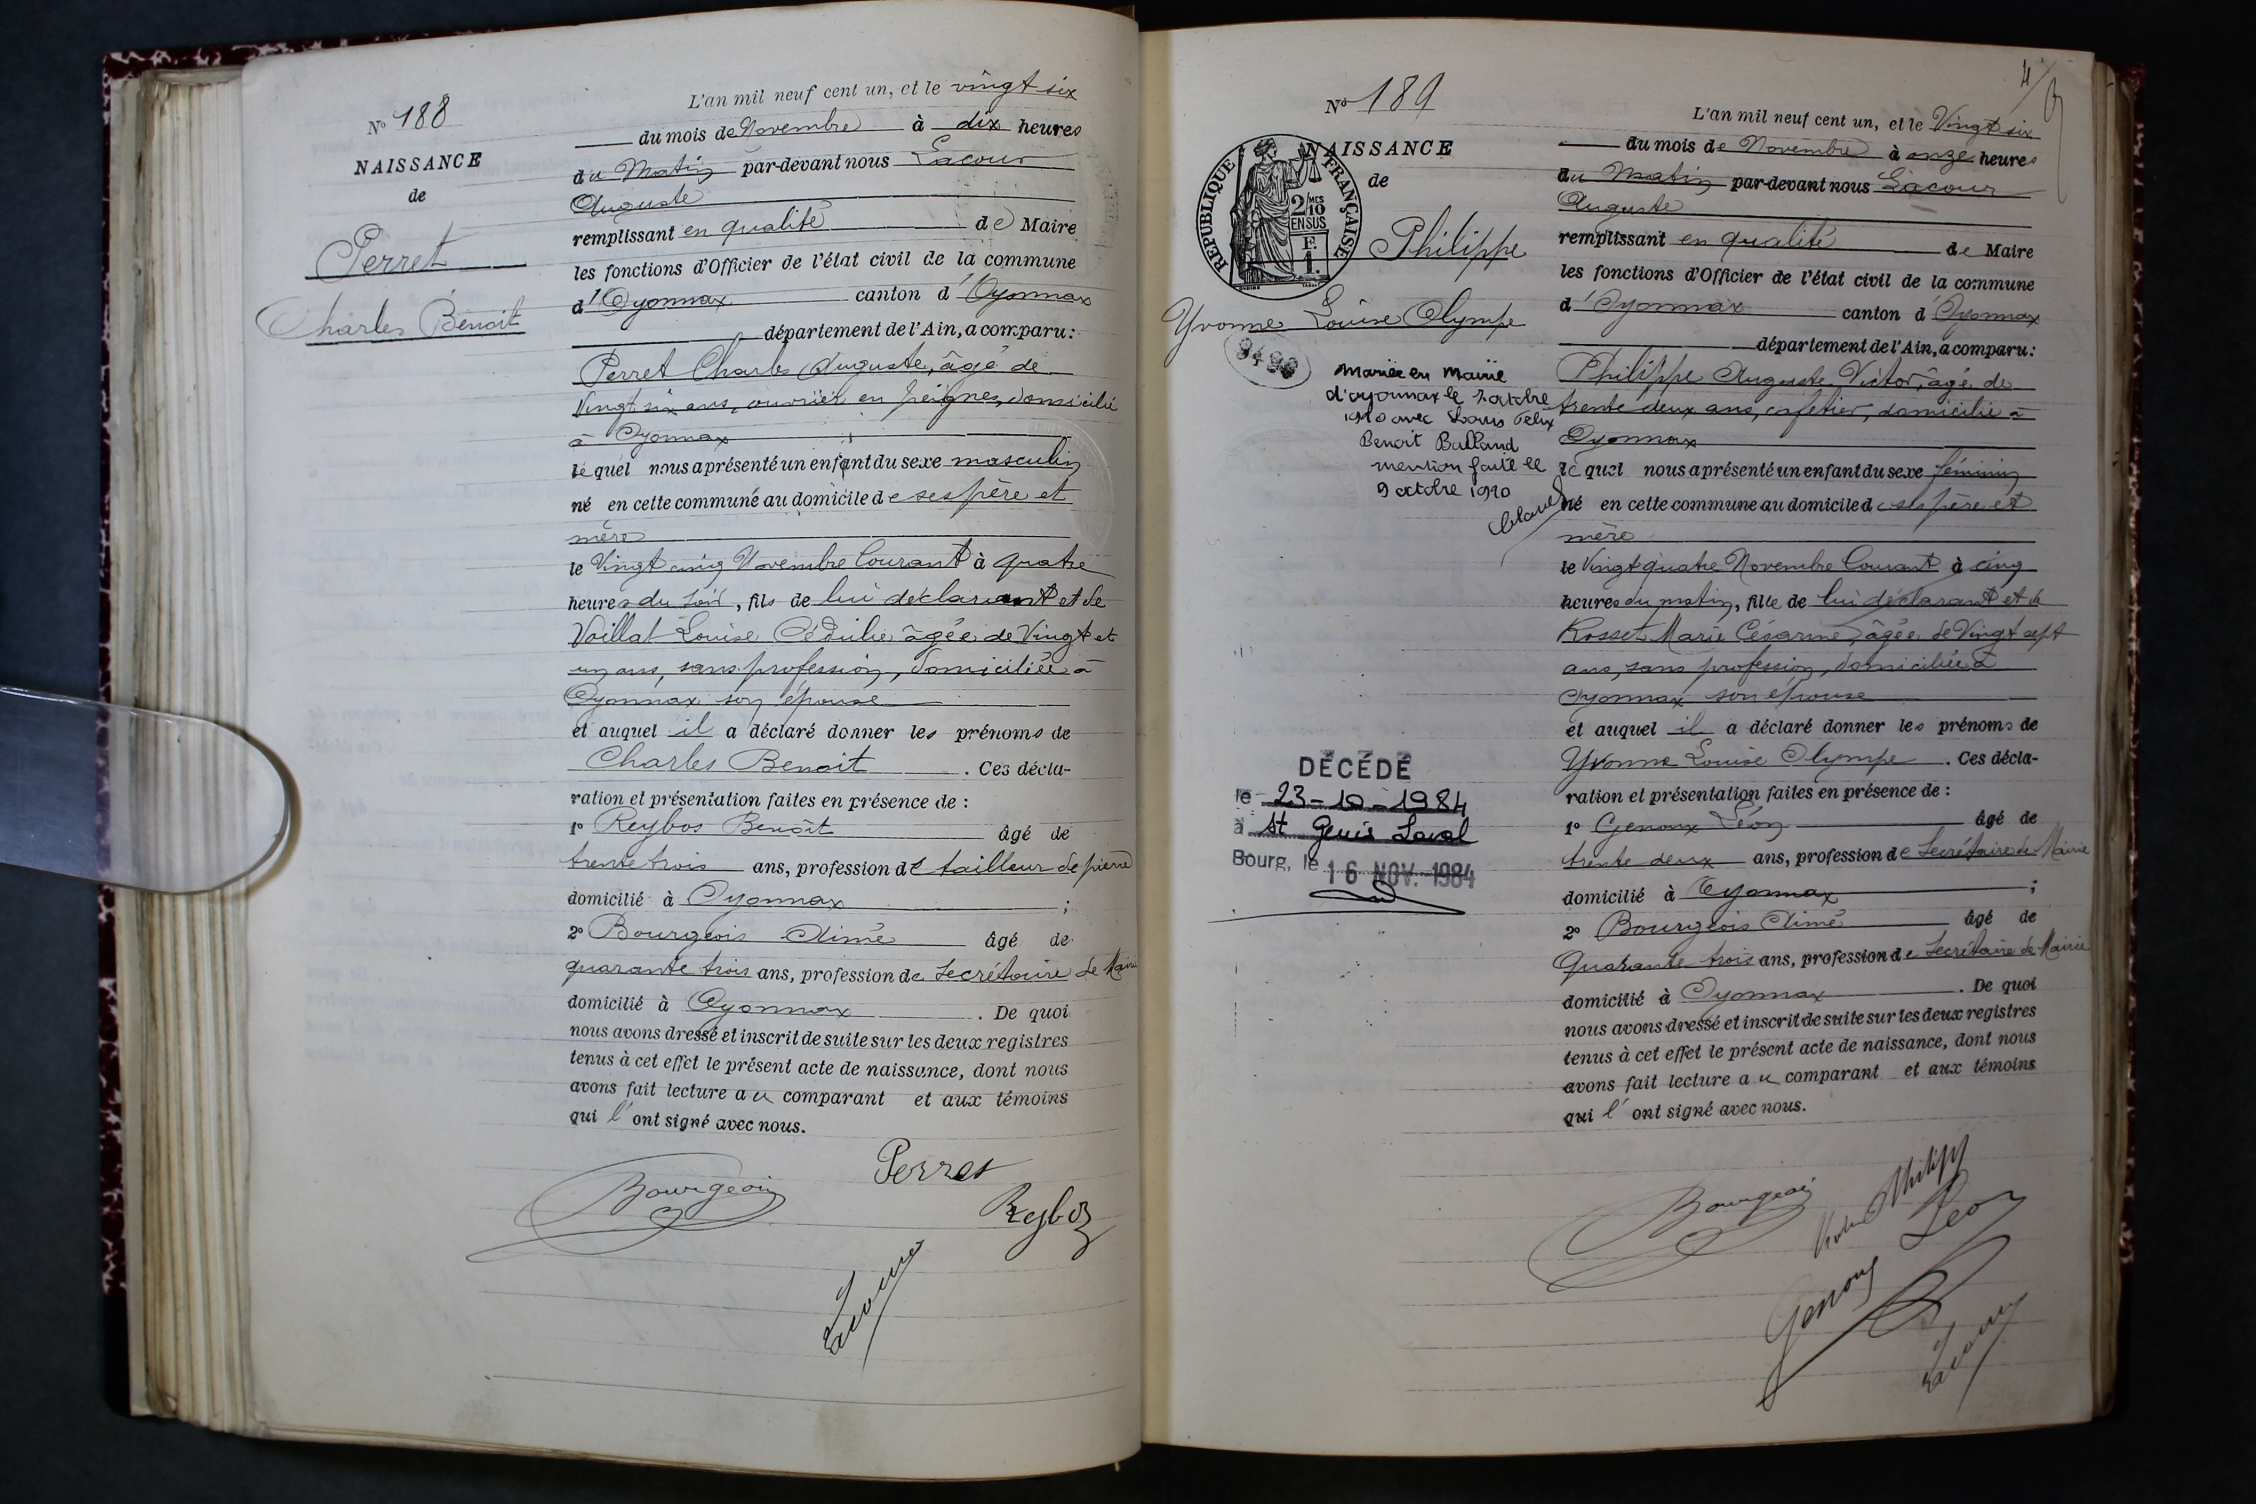 N° 188
NAISSANCE
de
Perret
Charles Benoit
L'an mil neuf cent un, et le vingt six
du mois de Novembre à dix heures
du Matin par-devant nous Lacour
Auguste
remplissant en qualité de Maire
les fonctions d'Officier de l'état civil de la commune
d'Oyonnax canton d'Oyonnax
département de l'Ain, a comparu:
Perret Charles Auguste, âgé de
Vingt six ans, ouvrier en peignes, domicilié
à Oyonnax
lequel nous a présenté un enfant du sexe masculin
né en cette commune au domicile de ses père et
mère
le Vingt cinq Novembre Courant à quatre
heures du soir, fils de lui déclarant et de
Voillat Louise Cédulie âgée de Vingt et
un ans, sans profession, domiciliée à
Oyonnax son épouse
et auquel il a déclaré donner les prénoms de
Charles Benoit. Ces décla-
ration et présentation faites en présence de :
1° Reybos Benoît âgé de
trente trois ans, profession de tailleur de pierre
domicilié à Oyonnax ;
2° Bourgeois Aimé âgé de
quarante trois ans, profession de Secrétaire de Mairie
domicilié à Oyonnax. De quoi
nous avons dressé et inscrit de suite sur les deux registres
tenus à cet effet le présent acte de naissance, dont nous
avons fait lecture au comparant et aux témoins
qui l'ont signé avec nous.
Perret
Bourgeois
Reybos
Lacour
4
N° 189
NAISSANCE
de
REPUBLIQUE FRANÇAISE
2/10 MES
EN SUS
1 F.
Philippe
Yvonne Louise Olympe
Mariée en Mairie
d'oyonnax le 7 octobre
1920 avec Louis Félix
Benoit Balland
mention faite le
9 octobre 1920
DÉCÉDÉ
le 23-10-1984
à St Genis Laval
Bourg, le 16 NOV. 1984
L'an mil neuf cent un, et le Vingt six
du mois de Novembre à onze heures
du Matin par-devant nous Lacour
Auguste
remplissant en qualité de Maire
les fonctions d'Officier de l'état civil de la commune
d'Oyonnax canton d'Oyonnax
département de l'Ain, a comparu:
Philippe Auguste Victor, âgé de
trente deux ans, cafetier, domicilié à
Oyonnax
lequel nous a présenté un enfant du sexe féminin
né en cette commune au domicile de ses père et
mère
le Vingt quatre Novembre Courant à cinq
heures du matin, fille de lui déclarant et de
Rosset Marie Césarine, âgée de Vingt sept
ans, sans profession, domiciliée à
Oyonnax son épouse
et auquel il a déclaré donner les prénoms de
Yvonne Louise Olympe. Ces décla-
ration et présentation faites en présence de :
1° Genoux Léon âgé de
trente deux ans, profession de Secrétaire de Mairie
domicilié à Oyonnax ;
2° Bourgeois Aimé âgé de
Quarante trois ans, profession de Secrétaire de Mairie
domicilié à Oyonnax. De quoi
nous avons dressé et inscrit de suite sur les deux registres
tenus à cet effet le présent acte de naissance, dont nous
avons fait lecture au comparant et aux témoins
qui l'ont signé avec nous.
Bourgeois
Victor Philippe
Genoux Léon
Lacour